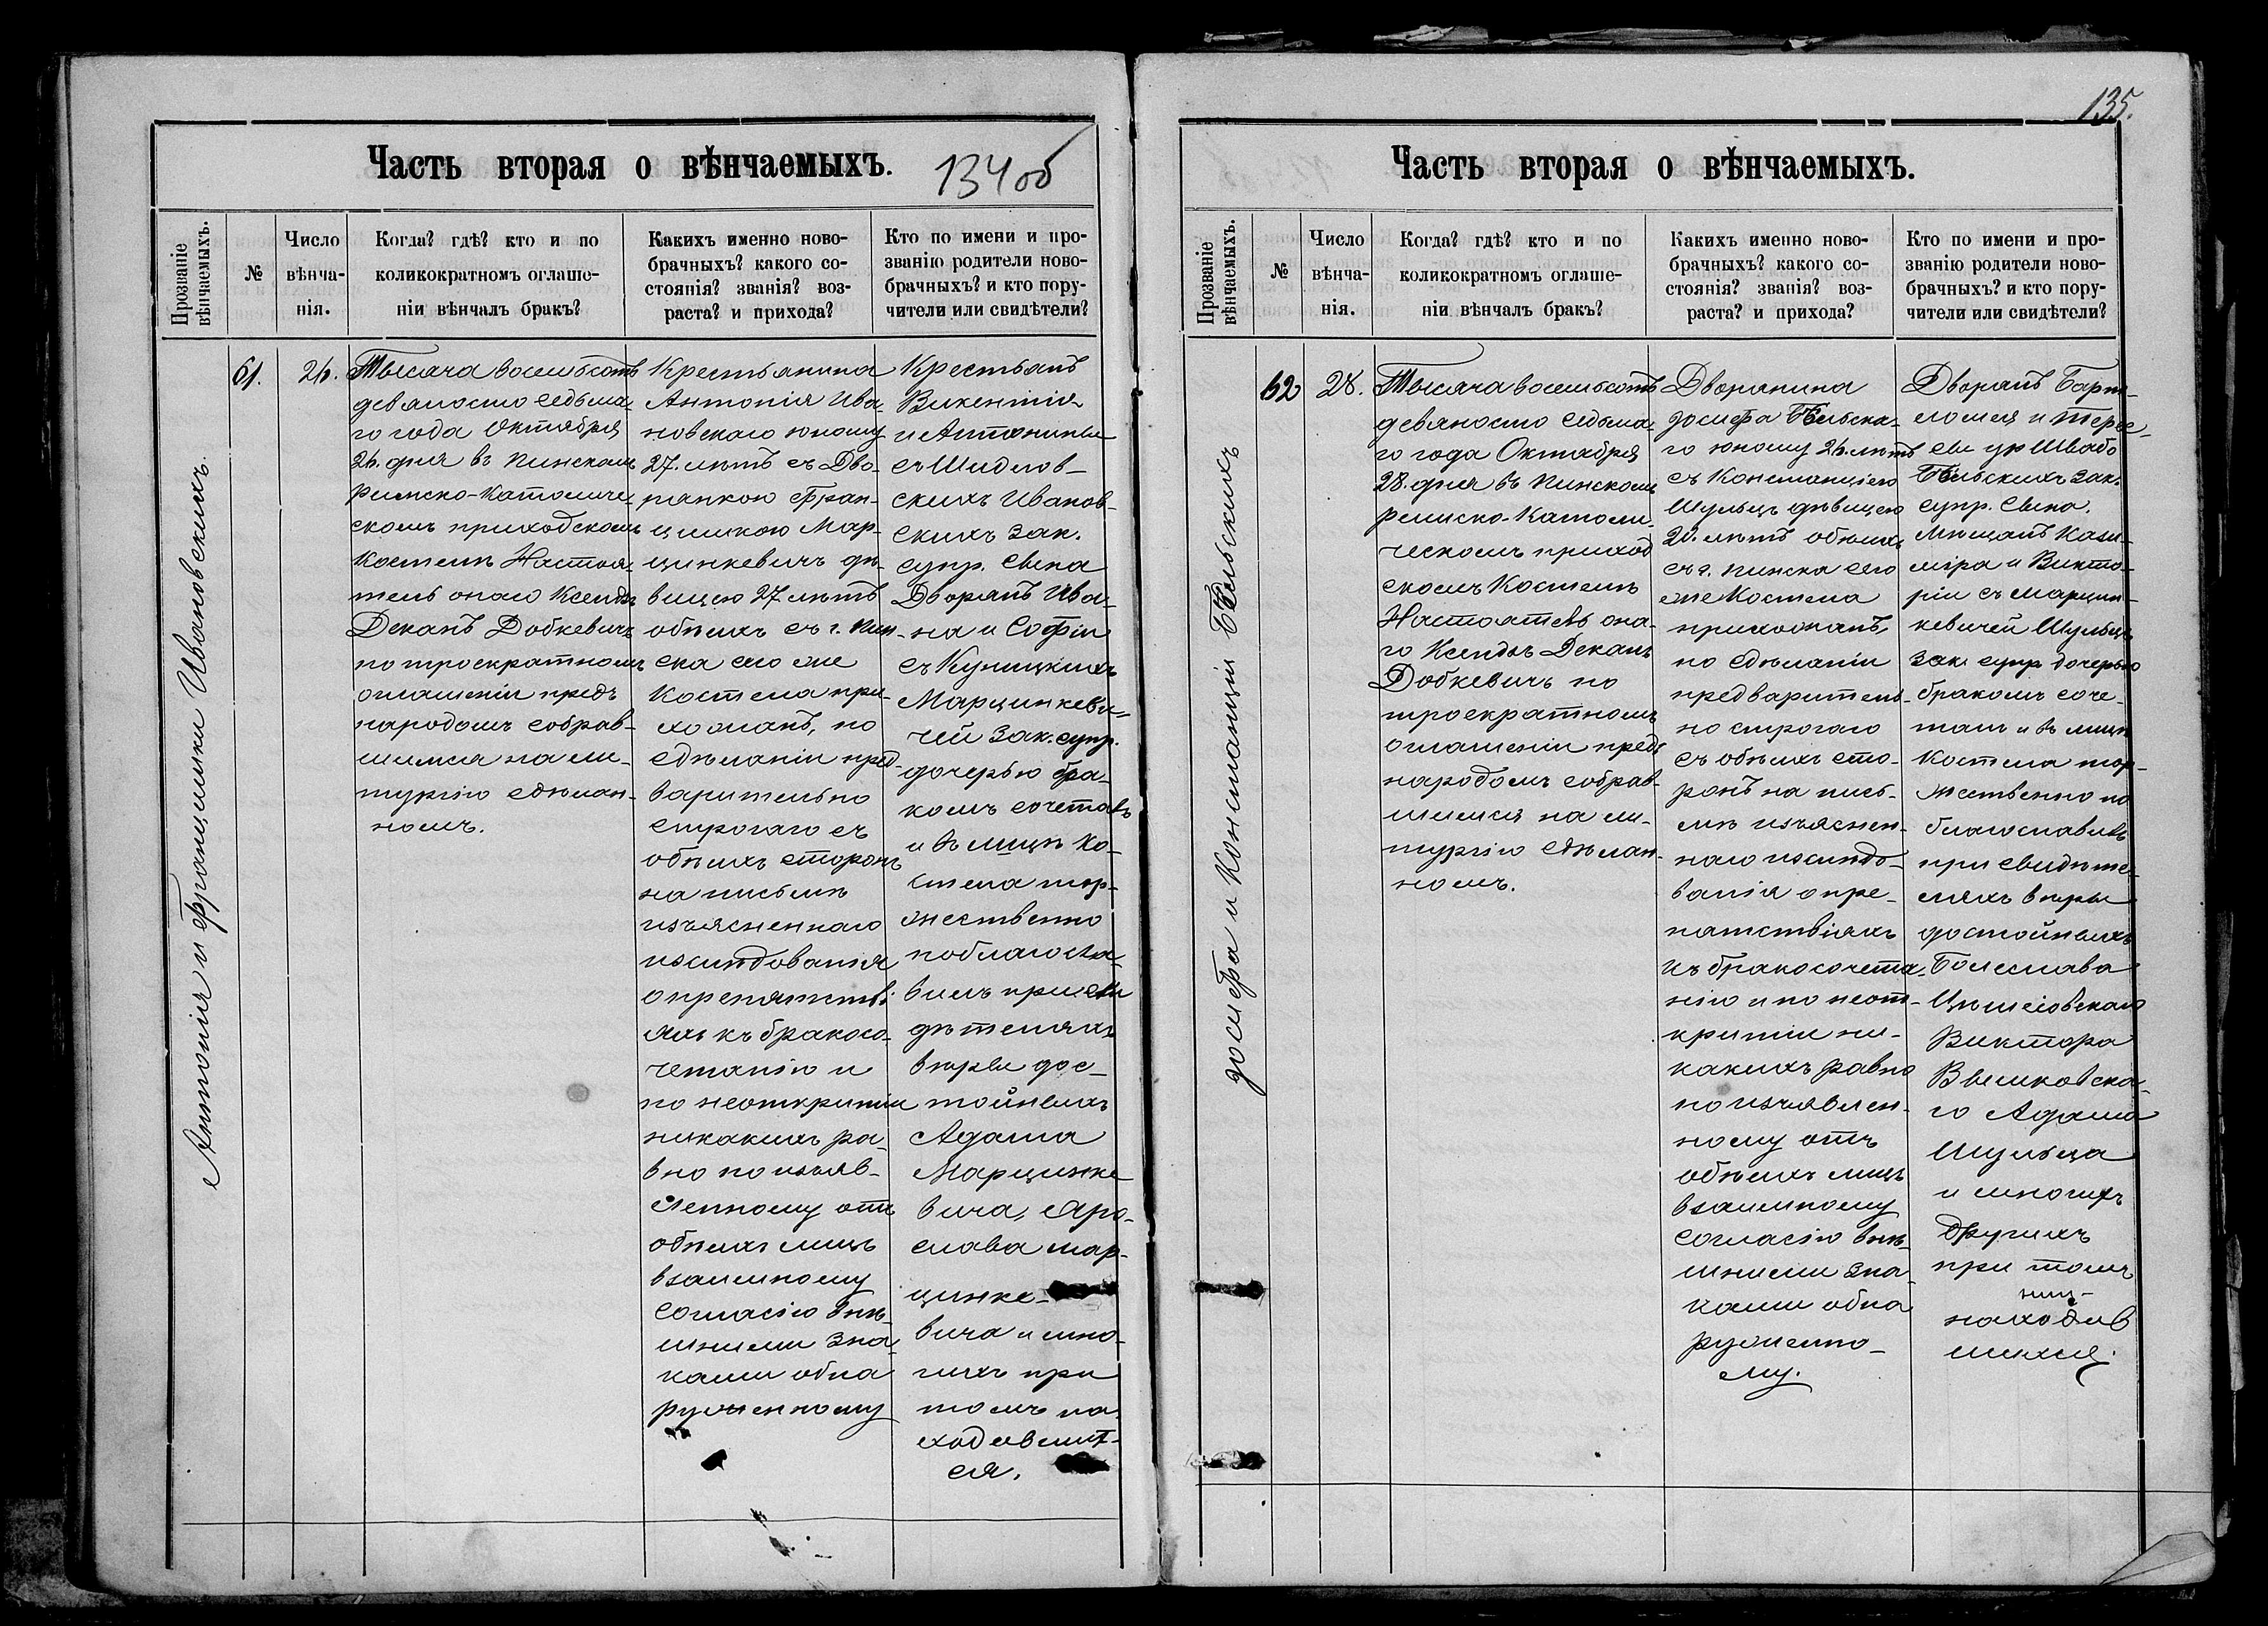 Часть вторая о вѣнчаемыхъ.
134 об
Прозваніе вѣнчаемыхъ.
№
Число вѣнча-
нія.
Когда? гдѣ? кто и по
коликократномъ оглаше-
ніи вѣнчалъ бракъ?
Какихъ именно ново-
брачныхъ? какого со-
стоянія? званія? воз-
раста? и прихода?
Кто по имени и про-
званію родители ново-
брачныхъ? и кто пору-
чители или свидѣтели?
Антонія и Францишки Ивановскихъ.
61.
26.
Тысяча восемьсотъ
девяносто седьма-
го года Октября
26. дня въ Пинскомъ
Римско-Католиче
скомъ приходскомъ
Костелѣ Настоя
тель онаго Ксендзъ
Деканъ Добкевичъ
по троекратномъ
оглашеніи предъ
народомъ собрав-
шимся на ли-
тургію сдѣлан-
номъ.
Крестьянина
Антонія Ива-
новскаго юношу
27. лѣтъ съ Дво-
рянкою Фран-
цишкою Мар-
цинкевичъ дѣ-
вицею 27 лѣтъ
обѣихъ съ г. Пин-
ска сего же
Костела при-
хожанъ, по
сдѣланіи пред-
варительно
строгаго съ
обѣихъ сторонъ
на письмѣ
изъясненнаго
изслѣдованія
о препятстві-
яхъ къ бракосо-
четанію и
по неоткрытіи
никакихъ ра-
вно по изъяв-
ленному отъ
обѣихъ лицъ
взаимному
согласію внѣ-
шними зна-
ками обна
руженному
Крестьянъ
Викентія
и Антонины
съ Шидлов-
скихъ Иванов-
скихъ зак.
супр. сына
Дворянъ Ива-
на и Софіи
съ Куницкихъ
Марцинкеви-
чей зак. супр.
дочерью бра-
комъ сочеталъ
и въ лицѣ Ко-
стела тор-
жественно
поблагосло-
вилъ при сви
дѣтеляхъ
вѣры дос-
тойныхъ
Адама
Марцинке
вича, Яро-
слава Мар-
цинке-
вича и мно-
гихъ при
томъ на
ходивших-
ся.
135.
Часть вторая о вѣнчаемыхъ.
Прозваніе вѣнчаемыхъ.
№
Число вѣнча-
нія.
Когда? гдѣ? кто и по
коликократномъ оглаше-
ніи вѣнчалъ бракъ?
Какихъ именно ново-
брачныхъ? какого со-
стоянія? званія? воз-
раста? и прихода?
Кто по имени и про-
званію родители ново-
брачныхъ? и кто пору-
чители или свидѣтели?
Іосифа и Констанціи Бѣльскихъ
62
28.
Тысяча восемьсотъ
девяносто седьма-
го года Октября
28. дня въ Пинскомъ
Римско-Католи-
ческомъ приход
скомъ Костелѣ
Настоятель она-
го Ксендзъ Деканъ
Добкевичъ по
троекратномъ
оглашеніи предъ
народомъ собрав-
шимся на ли-
тургію сдѣлан-
номъ.
Дворянина
Іосифа Бѣльска-
го юношу 26. лѣтъ
съ Констанціею
Шульцъ дѣвицею
20. лѣтъ обѣихъ
съ г. Пинска сего
же Костела
прихожанъ,
по сдѣланіи
предваритель-
но строгаго
съ обѣихъ сто-
ронъ на пись-
мѣ изъяснен-
наго изслѣдо-
ванія о пре-
пятствіяхъ
къ бракосочета-
нію и по неот-
крытіи ни-
какихъ равно
по изъявлен-
ному отъ
обѣихъ лицъ
взаимному
согласію внѣ-
шними зна-
ками обна
руженно-
му.
Дворянъ Барт-
ломея и Тере-
сы ур Швабо
Бѣльскихъ зак.
супр. сына.
Мѣщанъ Кази-
міра и Викто-
ріи съ Марцин-
кевичей Шульцъ
зак. супр. дочерью
бракомъ соче-
талъ и въ лицѣ
Костела тор-
жественно по
благославилъ
при свидѣте-
ляхъ вѣры
достойныхъ
Болеслава
Виктора
го Адама
Шульца
и многихъ
другихъ
при томъ
находив
шихся.